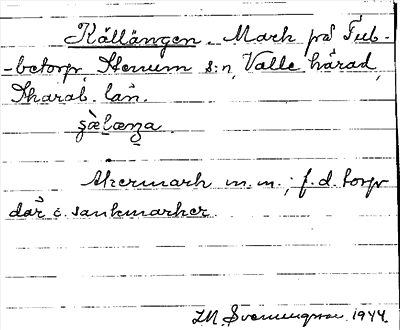 Källängen. Mark på Tub-
-betorp, Stenum s:n, Valle härad,
Skarab. län.
Åkermark m.m.; f.d. torp
där i sankmarker.
1944.